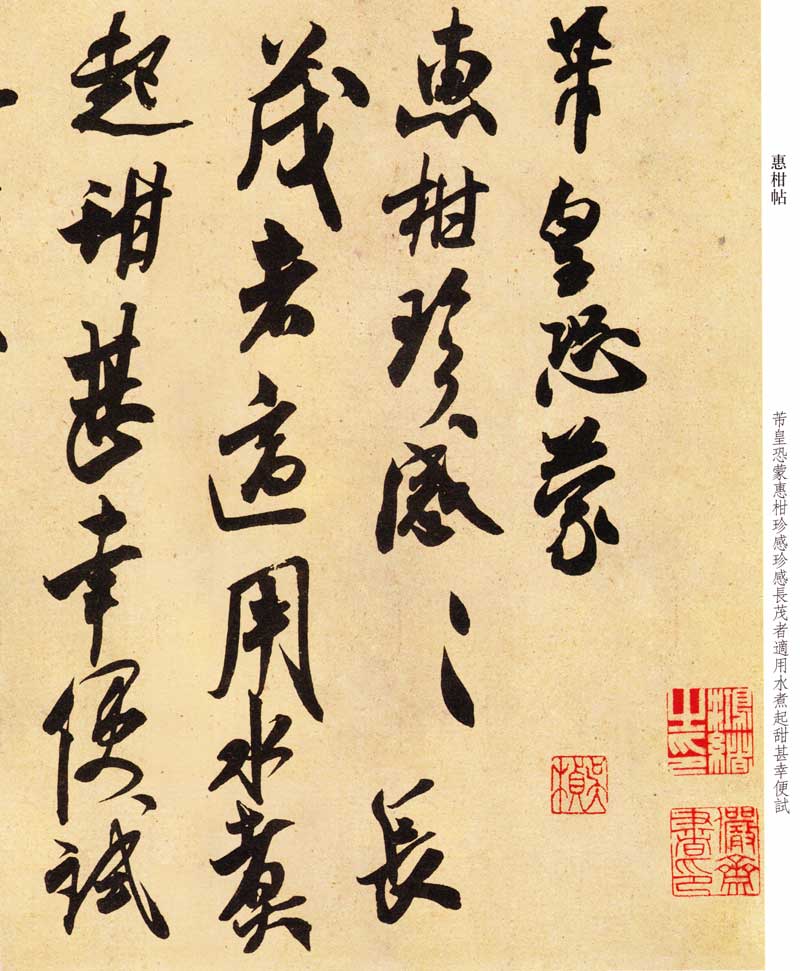 惠柑帖
芾皇恐蒙惠柑珍感珍感長茂者適用水煮起甜甚幸便試
芾皇恐蒙
惠柑珍感〻長
茂者適用水煮
起甜甚幸便試
鴻緒之印
儼齋書印
吳楨